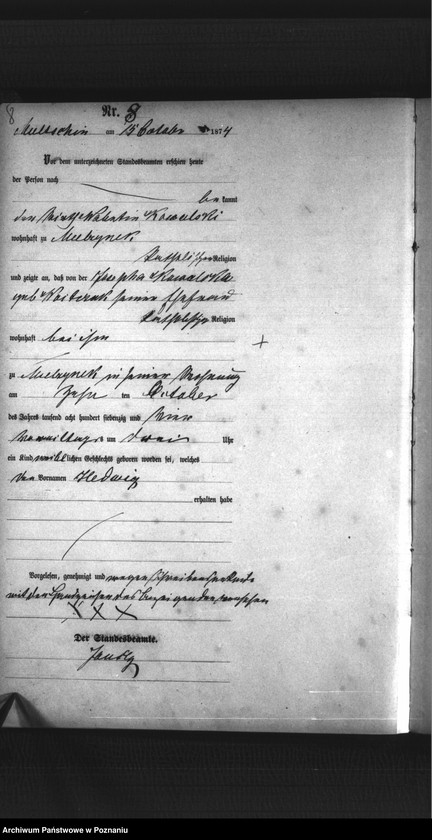 8
Nr. 8
Mieltschin am 15 October 1874
Vor dem unterzeichneten Standesbeamten erschien heute
der Person nach
bekannt
den Wirth Valentin Kowalski
wohnhaft zu Mielzynek
katholischer Religion
und zeigte an, daß von der Josepha Kowalska
geb. seiner Ehefrau
katholischer Religion
wohnhaft bei ihm
zu Mielzynek in seiner Wohnung
am Zehn ten October
des Jahres tausend acht hundert siebenzig und Vier
Vormittags um drei Uhr
ein Kind weiblichen Geschlechts geboren worden sei, welches
den Vornamen Hedwig
erhalten habe
Vorgelesen, genehmigt und wegen
mit den Handzeichen des Anzeigenden versehen
XXX
Der Standesbeamte.
Archiwum Państwowe w Poznaniu